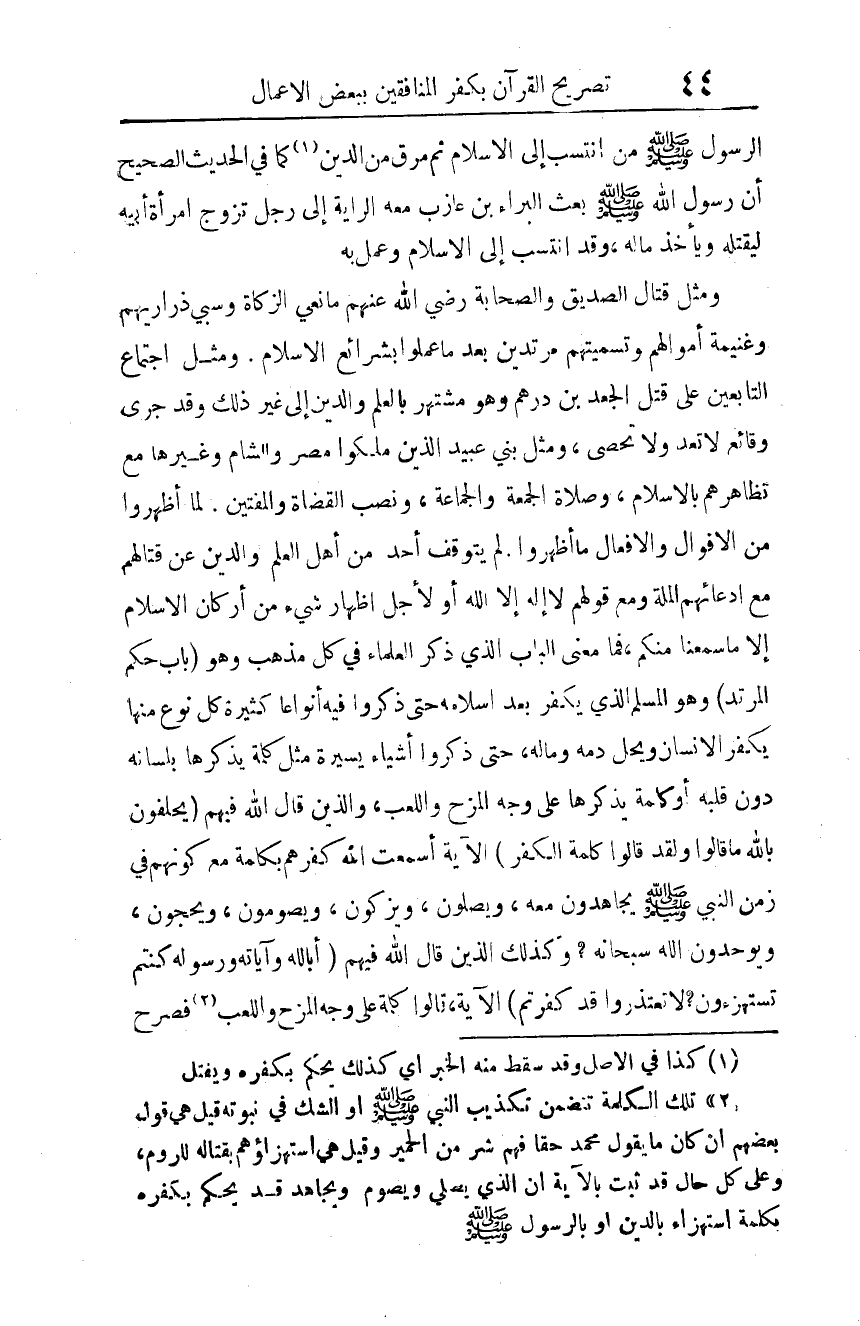 ٤٤ تصريح القرآن بكفر المنافقين ببعض الاعمال
الرسول ﷺ من انتسب إلى الاسلام ثم مرق من الدين (١) كما في الحديث الصحيح
أن رسول الله ﷺ بعث البراء بن عازب معه الراية إلى رجل تزوج امرأة أبيه
ليقتله ويأخذ ماله ، وقد انتسب إلى الاسلام وعمل به
ومثل قتال الصديق والصحابة رضي الله عنهم مانعي الزكاة وسبي ذراريهم
وغنيمة أموالهم وتسميتهم مرتدين بعد ما عملوا بشرائع الاسلام . ومثل اجتماع
التابعين على قتل الجعد بن درهم وهو مشتهر بالعلم والدين إلى غير ذلك وقد جرى
وقائع لا تعد ولا تحصى ، ومثل بني عبيد الذين ملكوا مصر والشام وغيرها مع
تظاهرهم بالاسلام ، وصلاة الجمعة والجماعة ، ونصب القضاة والمفتين . لما أظهروا
من الاقوال والافعال ما أظهروا . لم يتوقف أحد من أهل العلم والدين عن قتالهم
مع ادعائهم الملة ومع قولهم لا إله إلا الله أو لأجل اظهار شيء من أركان الاسلام
إلا ما سمعنا منكم ، فما معنى الباب الذي ذكر العلماء في كل مذهب وهو (باب حكم
المرتد) وهو المسلم الذي يكفر بعد اسلامه حتى ذكروا فيه أنواعا كثيرة كل نوع منها
يكفر الانسان ويحل دمه وماله ، حتى ذكروا أشياء يسيرة مثل كلمة يذكرها بلسانه
دون قلبه أو كلمة يذكرها على وجه المزح واللعب ، والذين قال الله فيهم (يحلفون
بالله ما قالوا ولقد قالوا كلمة الكفر ) الآية أسمعت الله كفرهم بكلمة مع كونهم في
زمن النبي ﷺ يجاهدون معه ، ويصلون ، ويزكون ، ويصومون ، ويحجون ،
ويوحدون الله سبحانه ؟ وكذلك الذين قال الله فيهم ( أبالله وآياته ورسوله كنتم
تستهزءون؟ لا تعتذروا قد كفرتم) الآية ، قالوا كلمة على وجه المزح واللعب (٢) فصرح
(١) كذا في الاصل وقد سقط منه الخبر اي كذلك يحكم بكفره ويقتل
«٢» تلك الكلمة تتضمن تكذيب النبي ﷺ او الشك في نبوته قيل هي قول
بعضهم ان كان ما يقول محمد حقا فهم شر من الحمير وقيل هي استهزاؤهم بقتاله للروم ،
وعلى كل حال قد ثبت بالآية ان الذي يصلي ويصوم ويجاهد قد يحكم بكفره
بكلمة استهزاء بالدين او بالرسول ﷺ